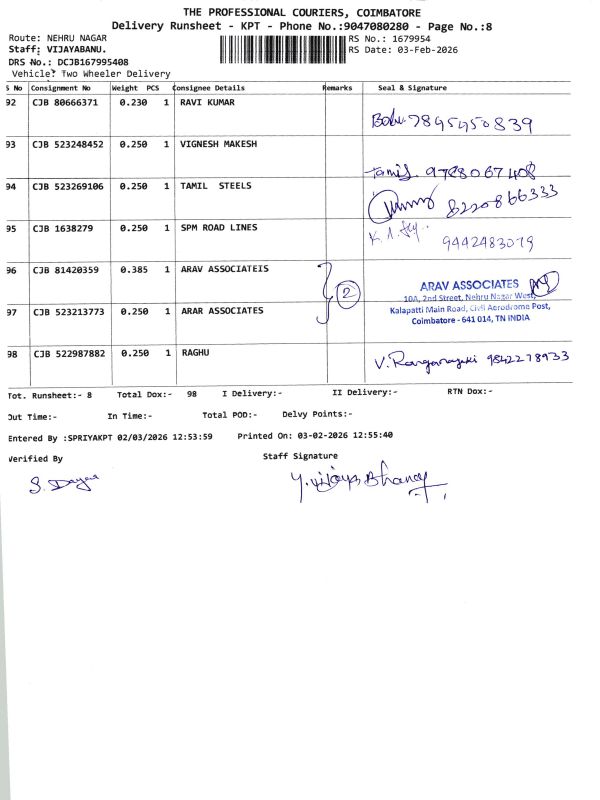 THE PROFESSIONAL COURIERS, COIMBATORE
Delivery Runsheet - KPT - Phone No.:9047080280 - Page No.:8
Route: NEHRU NAGAR
RS No.: 1679954
Staff: VIJAYABANU.
RS Date: 03-Feb-2026
DRS No.: DCJB167995408
Vehicle: Two Wheeler Delivery
S No Consignment No Weight PCS Consignee Details Remarks Seal & Signature
92 CJB 80666371 0.230 1 RAVI KUMAR
Babu 7895950839
93 CJB 523248452 0.250 1 VIGNESH MAKESH
Tamil 9788067408
94 CJB 523269106 0.250 1 TAMIL STEELS
8220866333
95 CJB 1638279 0.250 1 SPM ROAD LINES
K. A. 9442483079
96 CJB 81420359 0.385 1 ARAV ASSOCIATEIS
2
ARAV ASSOCIATES
10A, 2nd Street, Nehru Nagar West,
Kalapatti Main Road, Civil Aerodrome Post,
Coimbatore - 641 014, TN INDIA
97 CJB 523213773 0.250 1 ARAR ASSOCIATES
98 CJB 522987882 0.250 1 RAGHU
V. Ranganayaki 9842278933
Tot. Runsheet:- 8 Total Dox:- 98 I Delivery:- II Delivery:- RTN Dox:-
Out Time:- In Time:- Total POD:- Delvy Points:-
Entered By :SPRIYAKPT 02/03/2026 12:53:59 Printed On: 03-02-2026 12:55:40
Verified By Staff Signature